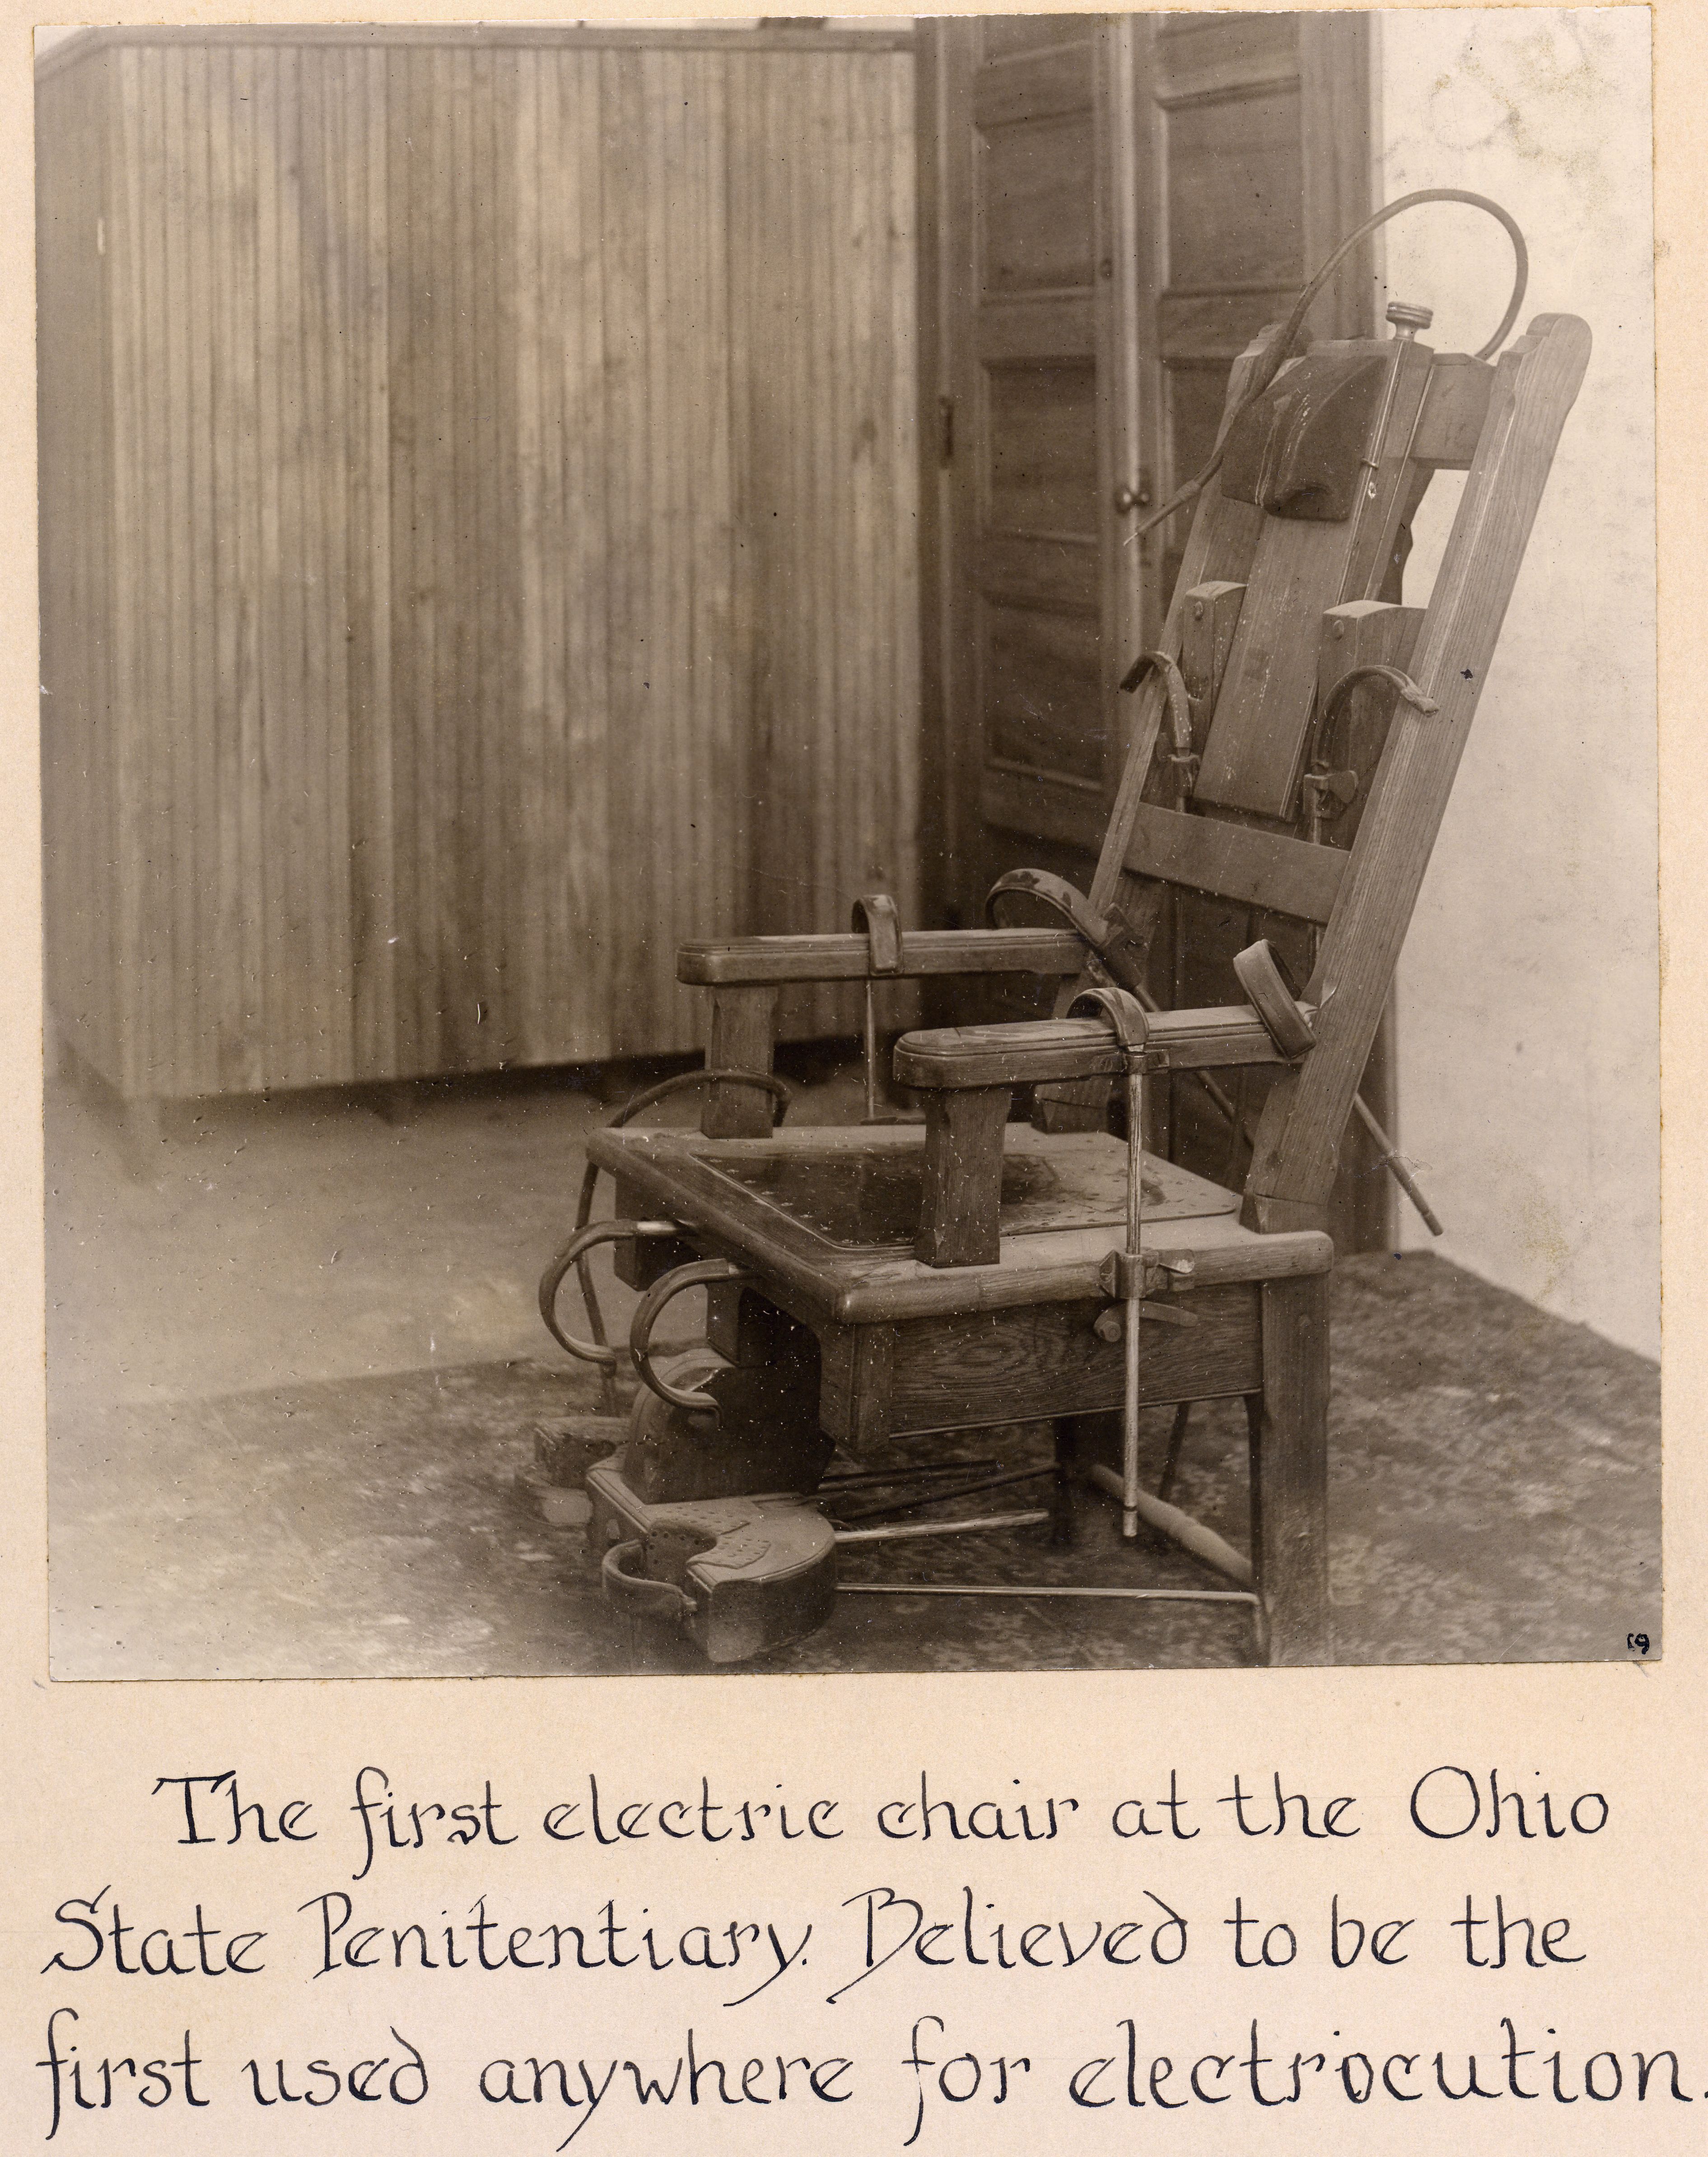 19
The first electric chair at the Ohio
State Penitentiary. Believed to be the
first used anywhere for electrocution.